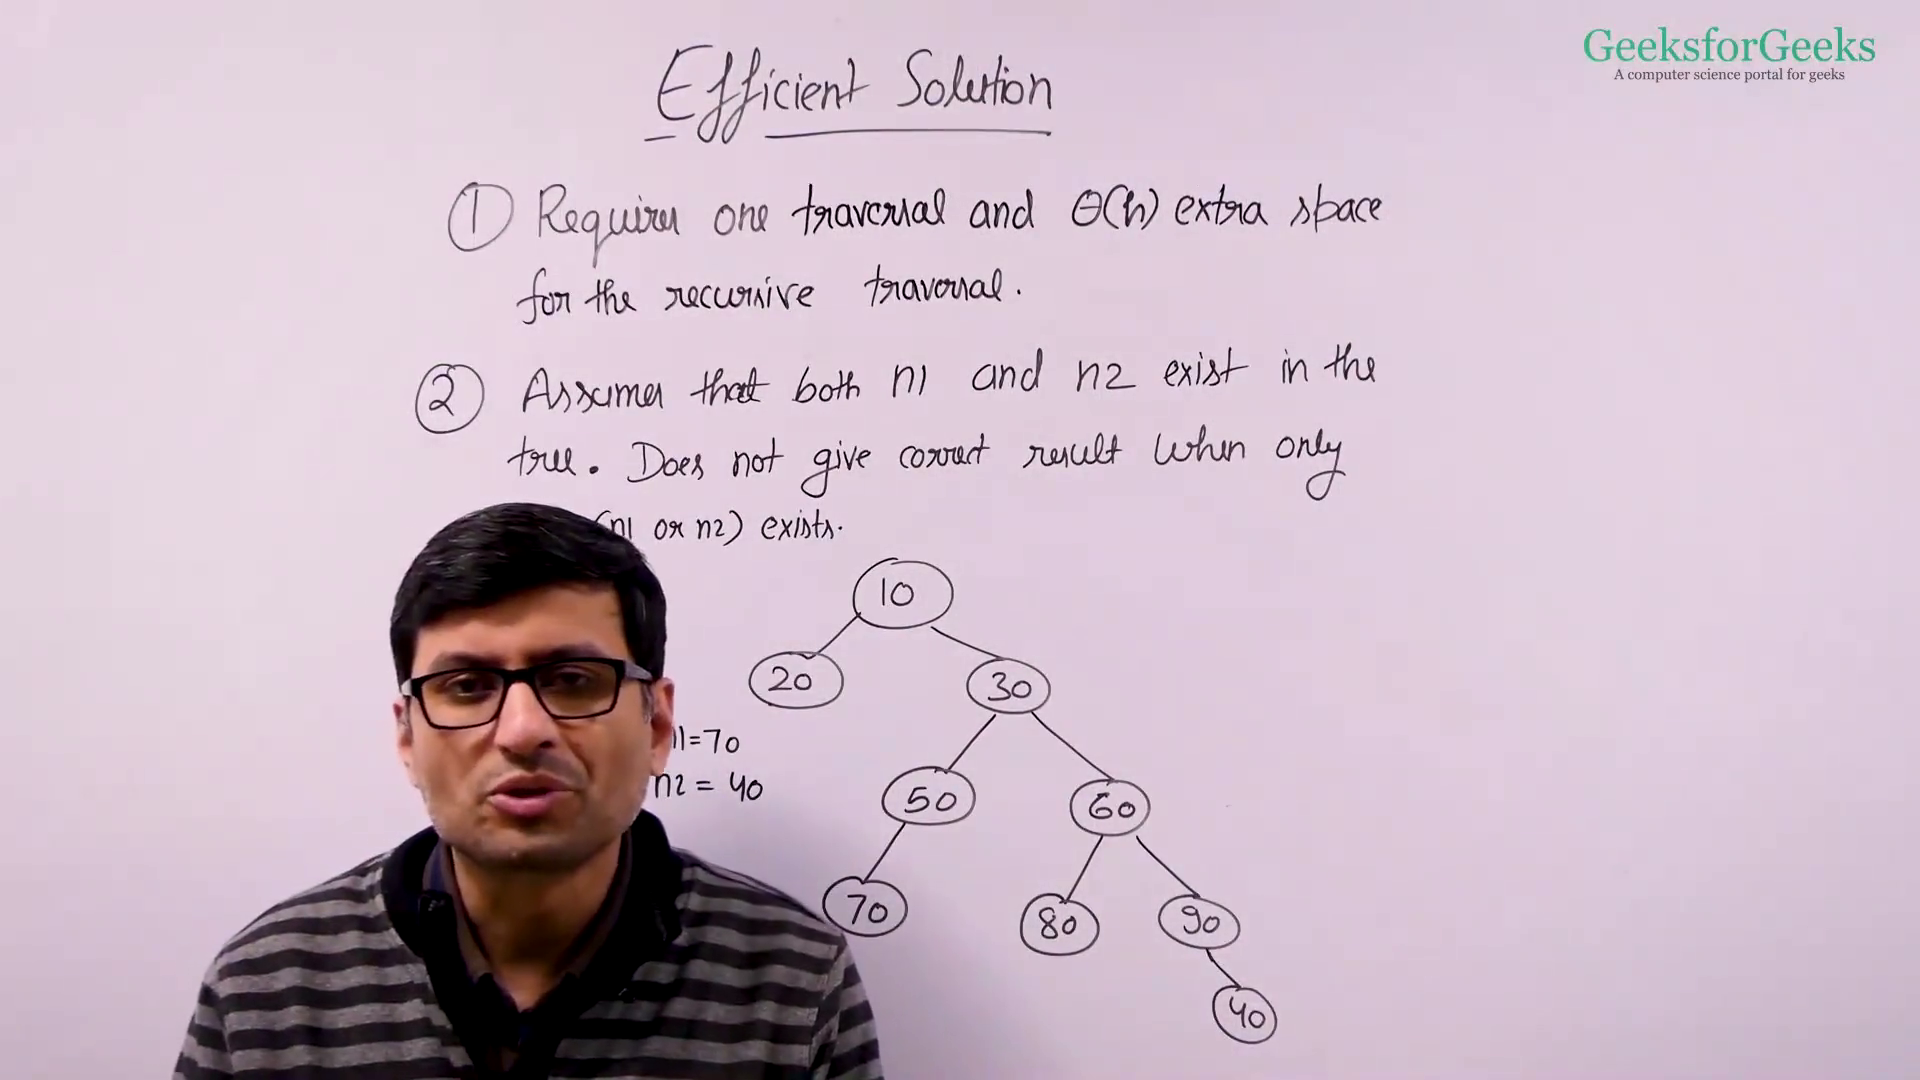 GeeksforGeeks
A computer science portal for geeks
Efficient Solution
① Requires one traversal and Θ(h) extra space
for the recursive traversal.
② Assumes that both n1 and n2 exist in the
tree. Does not give correct result when only
(n1 or n2) exists.
10
20
30
n1=70
n2 = 40
50
60
70
80
90
40